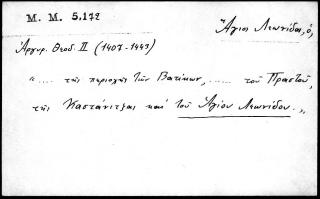 Μ. Μ. 5,172
Ἅγιος Λεωνίδας, ὁ,
Ἀργυρ. Θεοδ. ΙΙ (1407-1443)
"..... τῆς περιοχῆς τῶν Βατίκων, ..... τοῦ Πραστοῦ,
τῆς Καστάνιτζας καὶ τοῦ Ἁγίου Λεωνίδου.,,